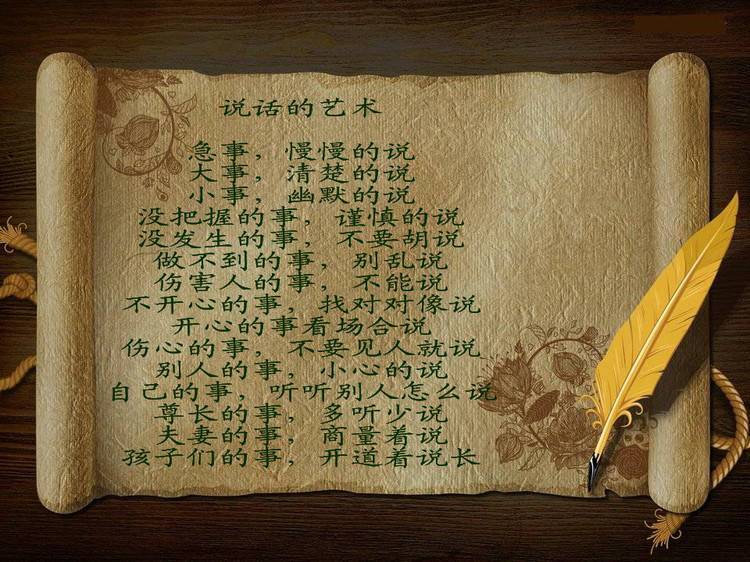 说话的艺术
急事，慢慢的说
大事，清楚的说
小事，幽默的说
没把握的事，谨慎的说
没发生的事，不要胡说
做不到的事，别乱说
伤害人的事，不能说
不开心的事，找对对像说
开心的事看场合说
伤心的事，不要见人就说
别人的事，小心的说
自己的事，听听别人怎么说
尊长的事，多听少说
夫妻的事，商量着说
孩子们的事，开道着说长